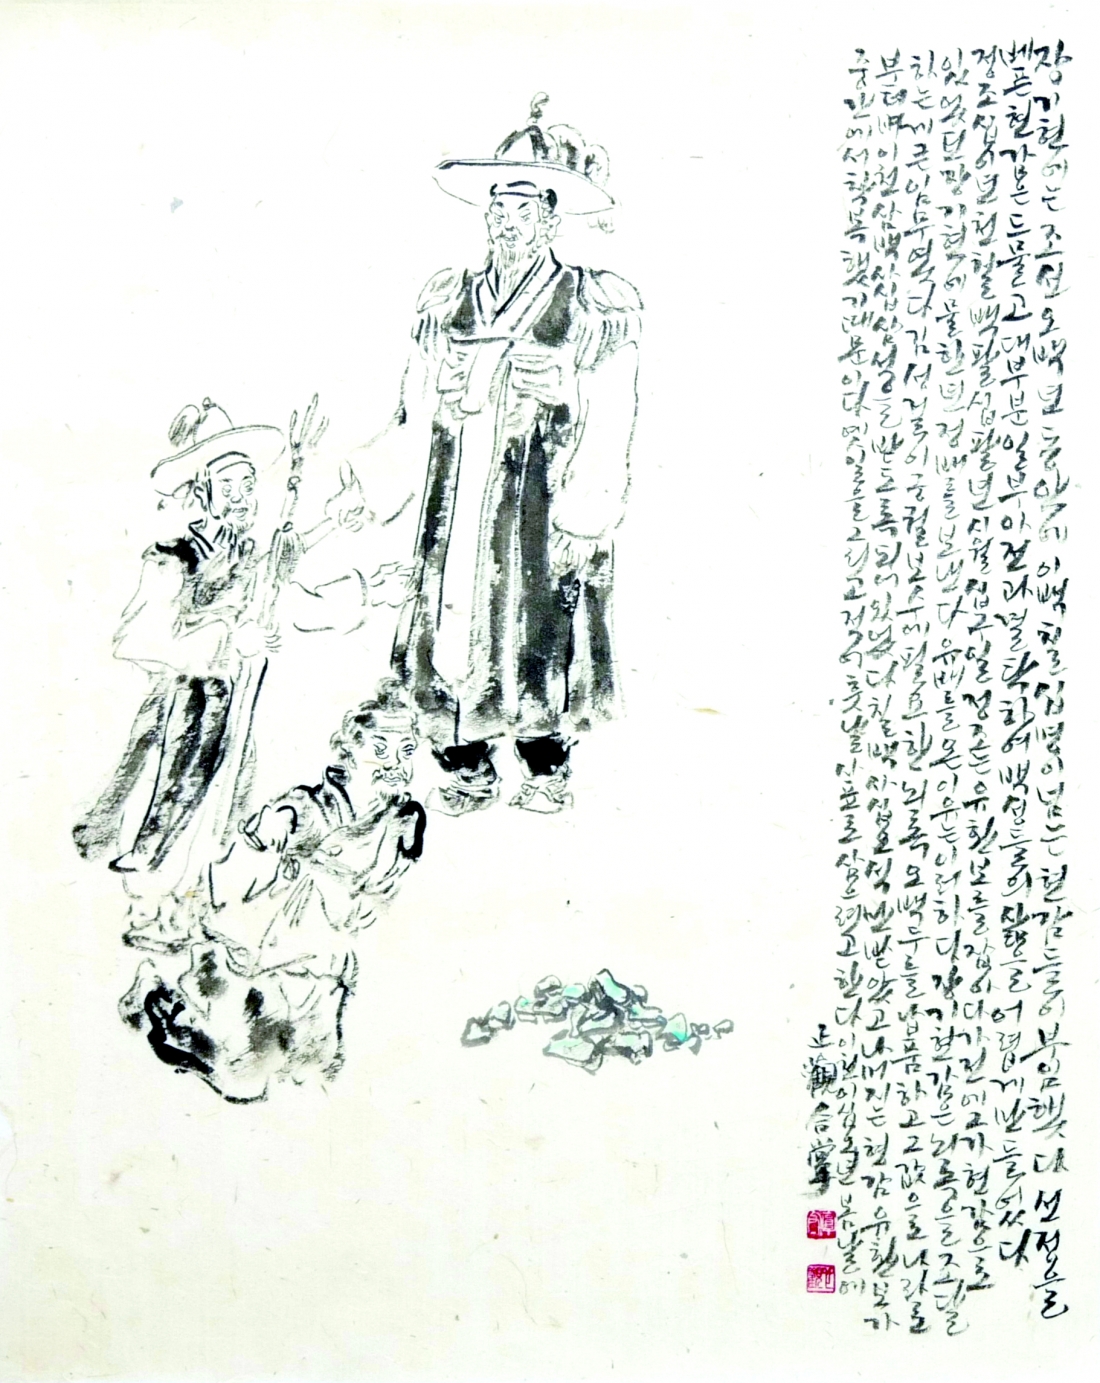 장기현에는 조선오백년 동안에 이백칠십명이 넘는 현감들이 부임했다 선정을
베푼 현감은 드물고 대부분 일부 아전과 결탁하여 백성들의 삶을 어렵게 만들었다
정조십이년 천칠백팔십팔년 시월십구일 정조는 유환보를 잡아다가 전에 그가 현감으로
있었던 장기현에 물한년정배를 보낸다 유배를 온 이유는 이러하다 장기현감은 뇌록을 조달
하는게 큰 임무였다 이 궁궐보수에 필요한 뇌록 오백두를 납품하고 그 값으로 나라로
부터 벼 이천삼백사십삼석을 받도록 되어 있었다 칠백사십오석만 받았고 나머지는 현감 유환보가
중간에서 착복했기 때문이다 옛일을 그리고 적어 훗날 사표로 삼으려고 한다 봄날에
正觀合掌